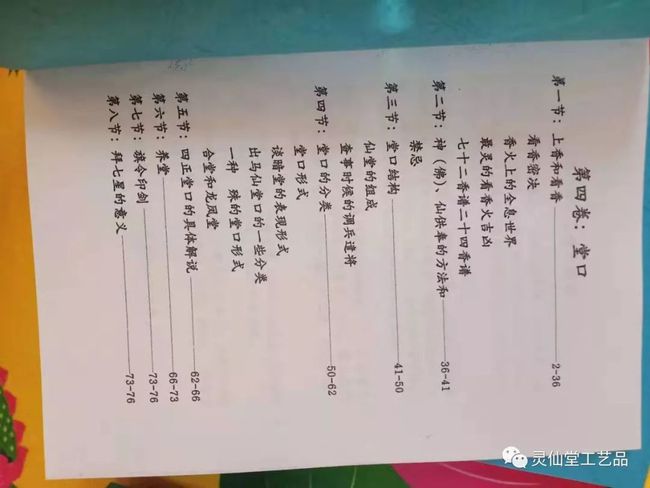 第四卷：堂口
第一节：上香和看香——2-36
看香密决
香火上的全息世界
最灵的看香火吉凶
七十二香谱二十四香谱
第二节：神（佛）、仙供奉的方法和——36-41
禁忌
第三节：堂口结构——41-50
仙堂的组成
查事时候的调兵遣将
第四节：堂口的分类——50-62
堂口形式
谈暗堂的表现形式
出马仙堂口的一些分类
一种 殊的堂口形式
合堂和龙凤堂
第五节：四正堂口的具体解说——62-66
第六节：养堂——66-73
第七节：旗令印剑——73-76
第八节：拜七星的意义——73-76
灵仙堂工艺品